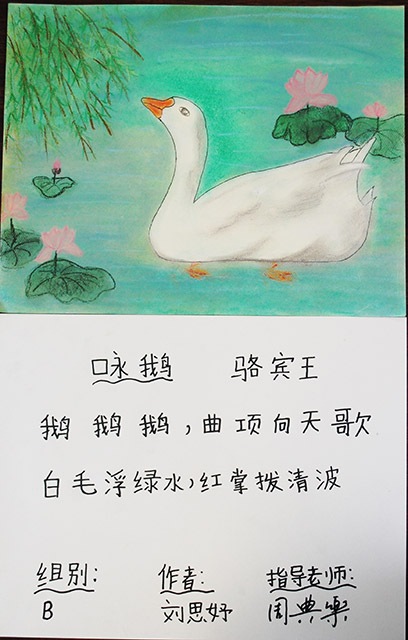 咏鹅 骆宾王
鹅 鹅 鹅，曲项向天歌
白毛浮绿水，红掌拨清波
组别： 作者： 指导老师：
B 刘思妤 周典樂